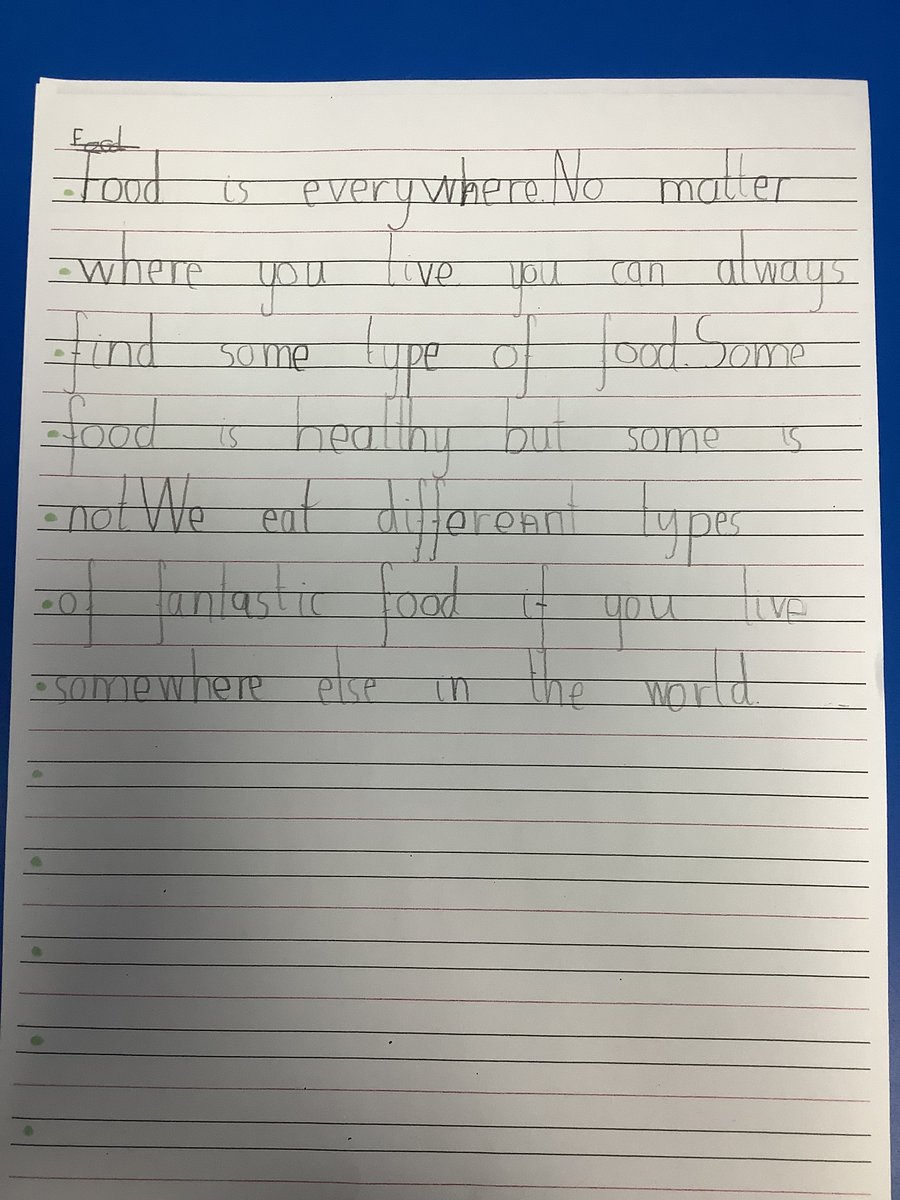 Food
Food is everywhere.No matter
where you live you can always
find some type of food.Some
food is healthy but some is
not We eat differennt types
of fantastic food if you live
somewhere else in the world.